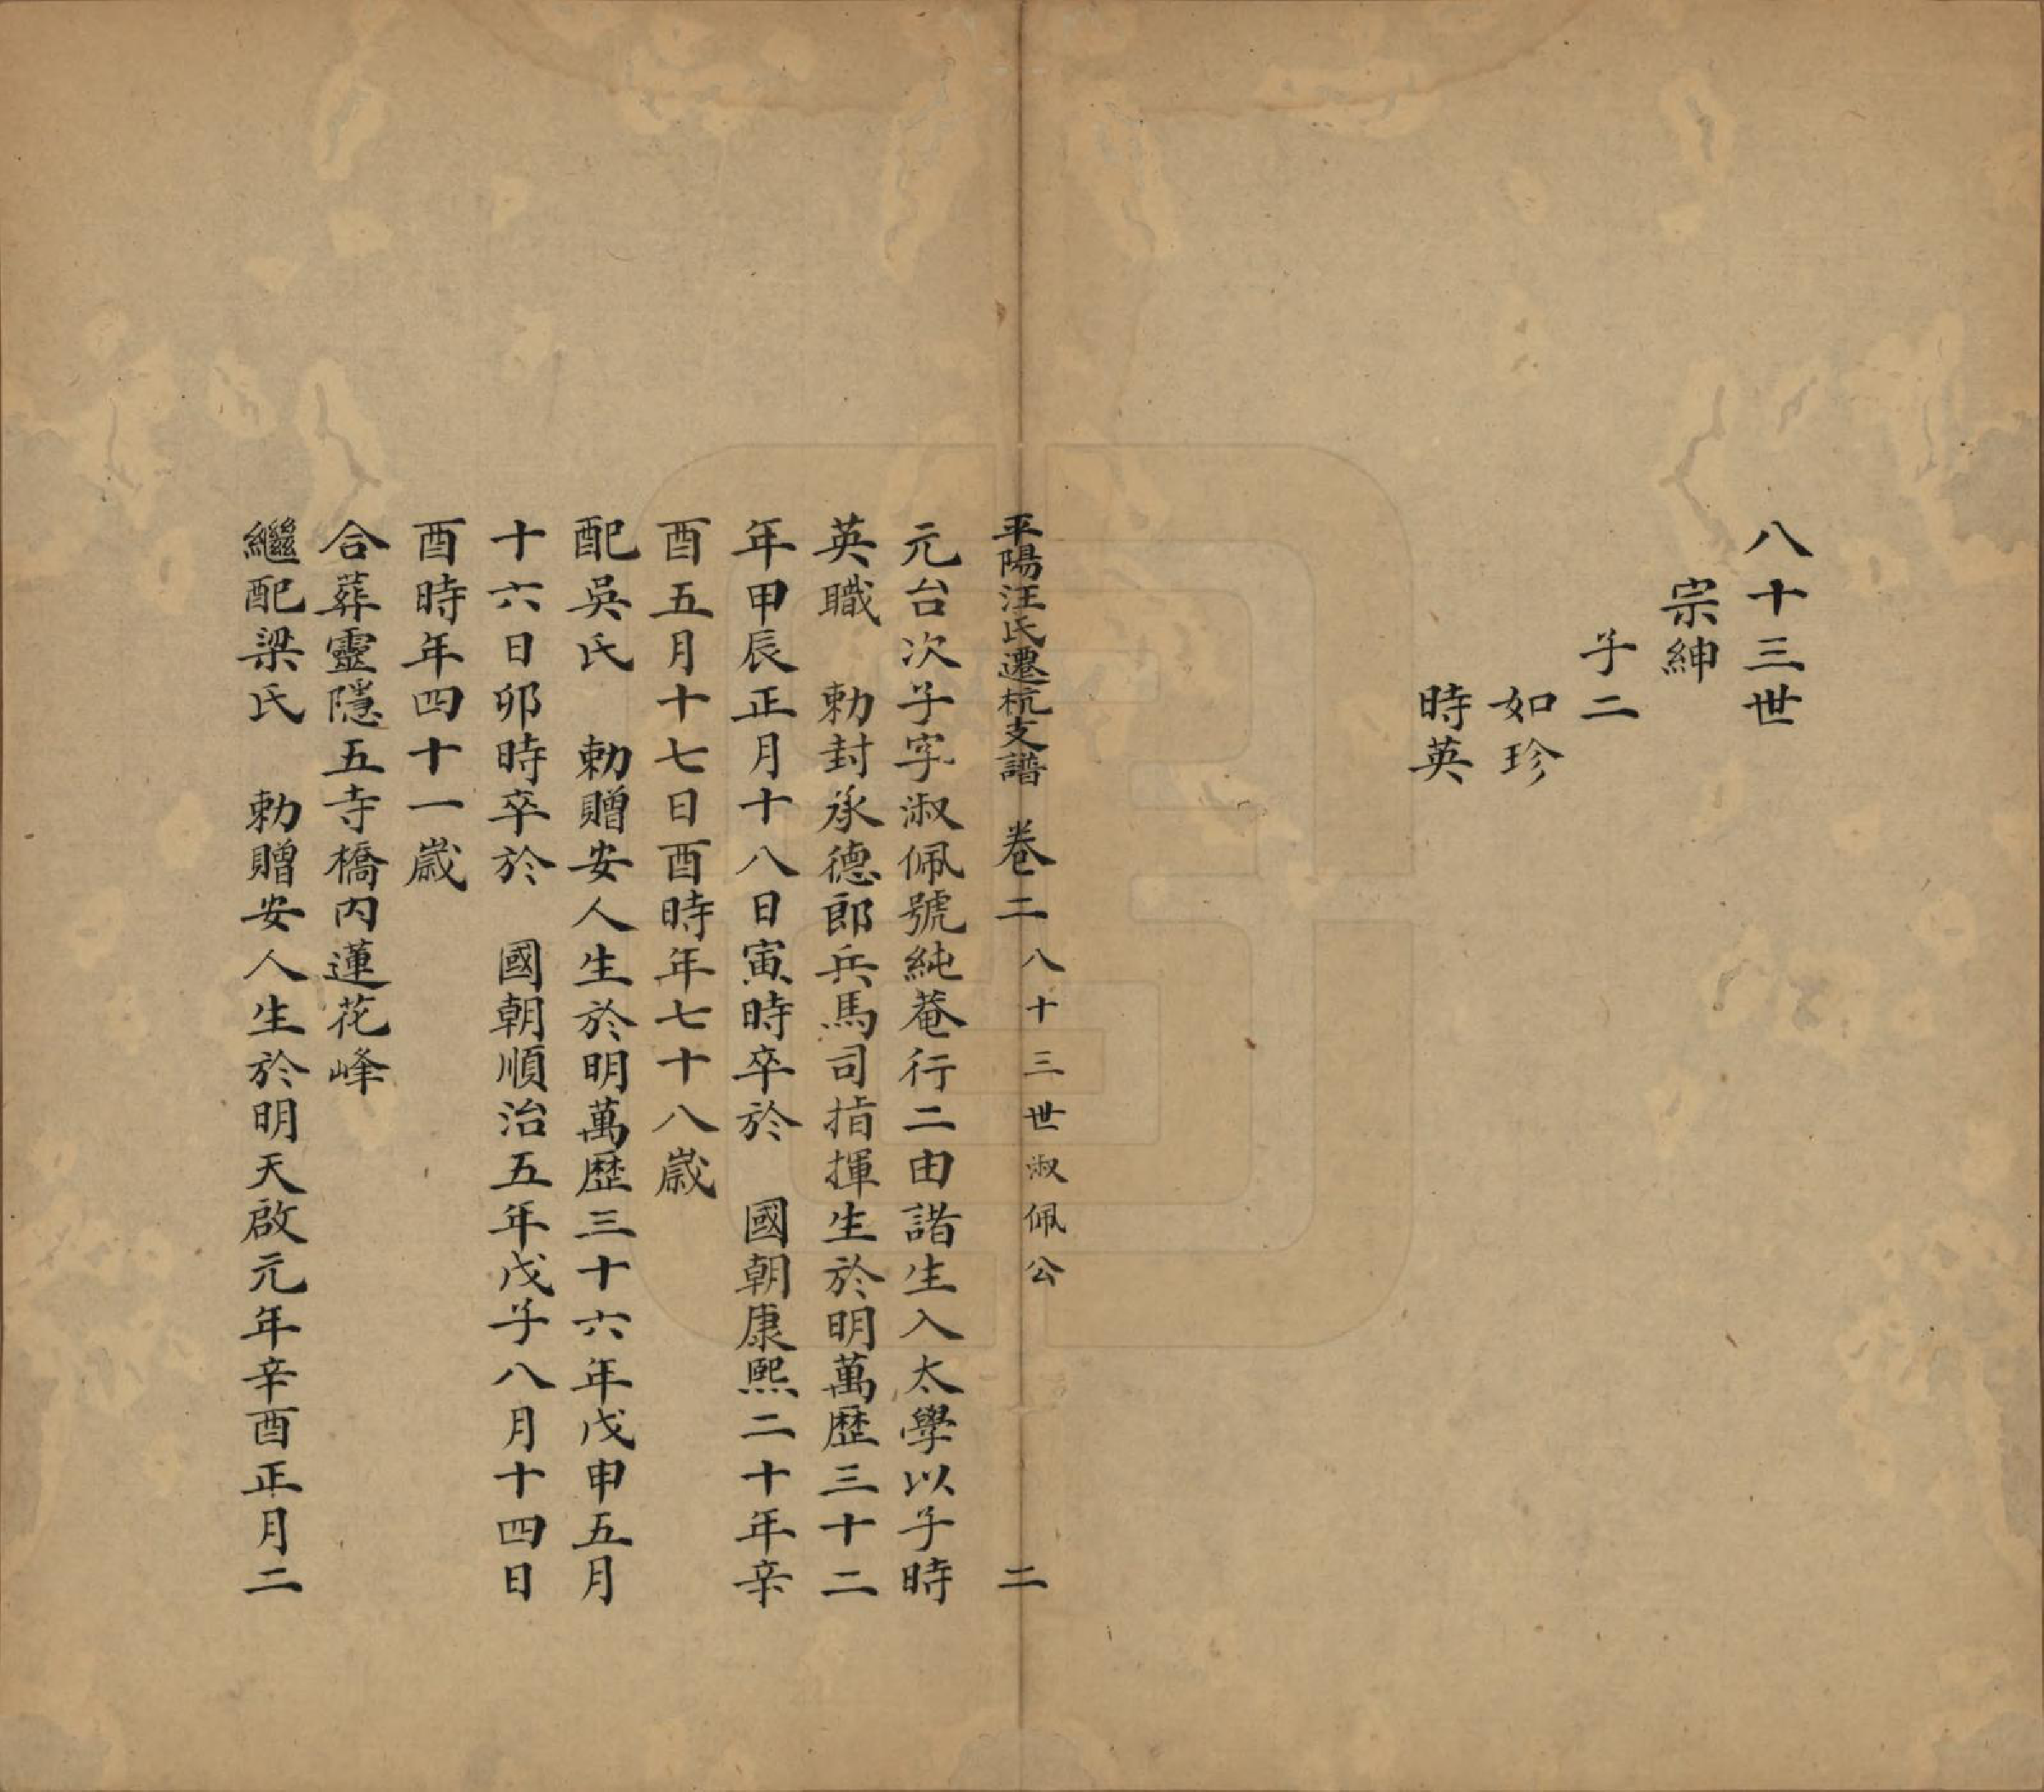 八十三世
宗紳
子二
如珍
時英
平陽汪氏遷杭支譜 卷二 八十三世淑佩公 二
元台次子字淑佩號純菴行二由諸生入太學以子時
英職 勅封承德郎兵馬司指揮生於明萬歷三十二
年甲辰正月十八日寅時卒於 國朝康熙二十年辛
酉五月十七日酉時年七十八歲
配吳氏 勅贈安人生於明萬歷三十六年戊申五月
十六日卯時卒於 國朝順治五年戊子八月十四日
酉時年四十一歲
合葬靈隱五寺橋內蓮花峰
繼配梁氏 勅贈安人生於明天啟元年辛酉正月二